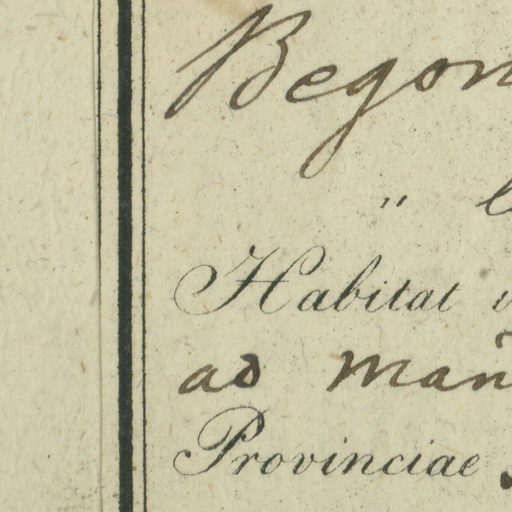 Begon
"
Habitat
ad Man
Provinciae